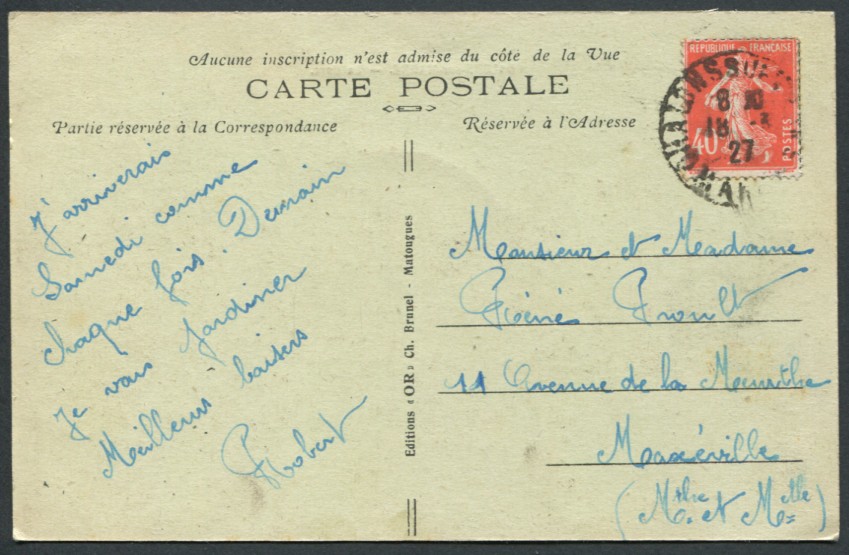 Aucune inscription n'est admise du côté de la Vue
CARTE POSTALE
Partie réservée à la Correspondance
Réservée à l'Adresse
J'arriverais
Samedi comme
chaque fois. Demain
Je vais Jardiner
Meilleurs baisers
Robert
Editions "OR" Ch. Brunel - Matougues
REPUBLIQUE FRANÇAISE
40
POSTES
CHALONS S
8
18
27
MAR
Monsieur et Madame
Réné
11 Avenue de la Meurthe
Maxéville
(Mthe et Mlle)